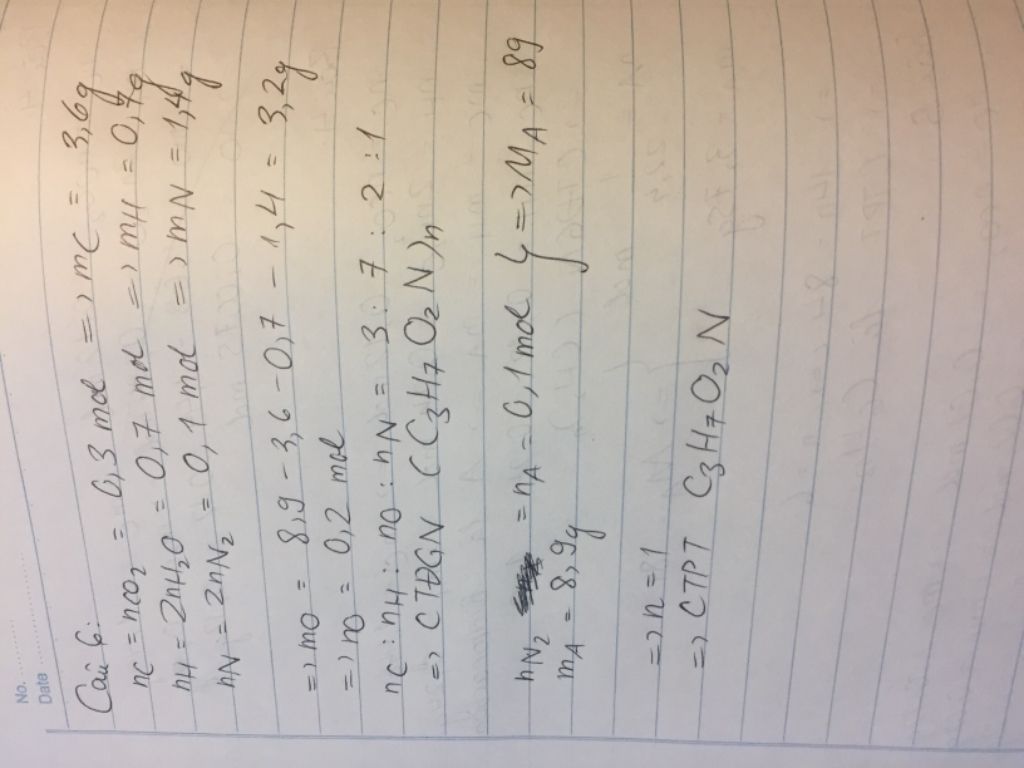 No. ....................
Date
Câu 6:
nC = nCO2 = 0,3 mol => mC = 3,6g
nH = 2nH2O = 0,7 mol => mH = 0,7g
nN = 2nN2 = 0,1 mol => mN = 1,4g
=> mO = 8,9 - 3,6 - 0,7 - 1,4 = 3,2g
=> nO = 0,2 mol
nC : nH : nO : nN = 3 : 7 : 2 : 1
=> CTĐGN (C3H7O2N)n
nN2 = nA = 0,1 mol } => MA = 89
mA = 8,9g
=> n = 1
=> CTPT C3H7O2N